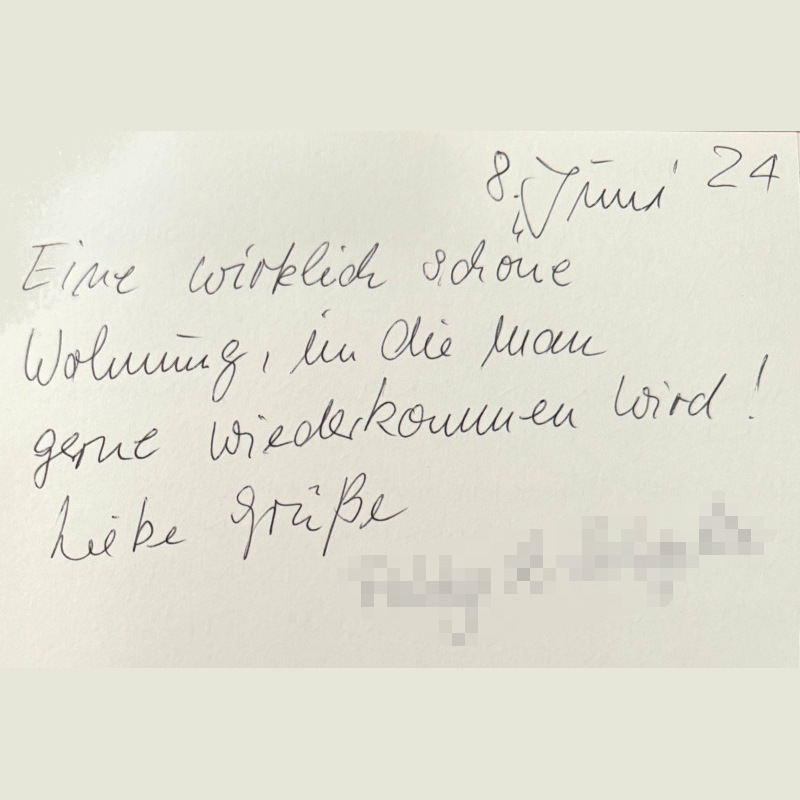 8. Juni 24
Eine wirklich schöne
Wohnung, in die man
gerne wiederkommen wird!
Liebe Grüße